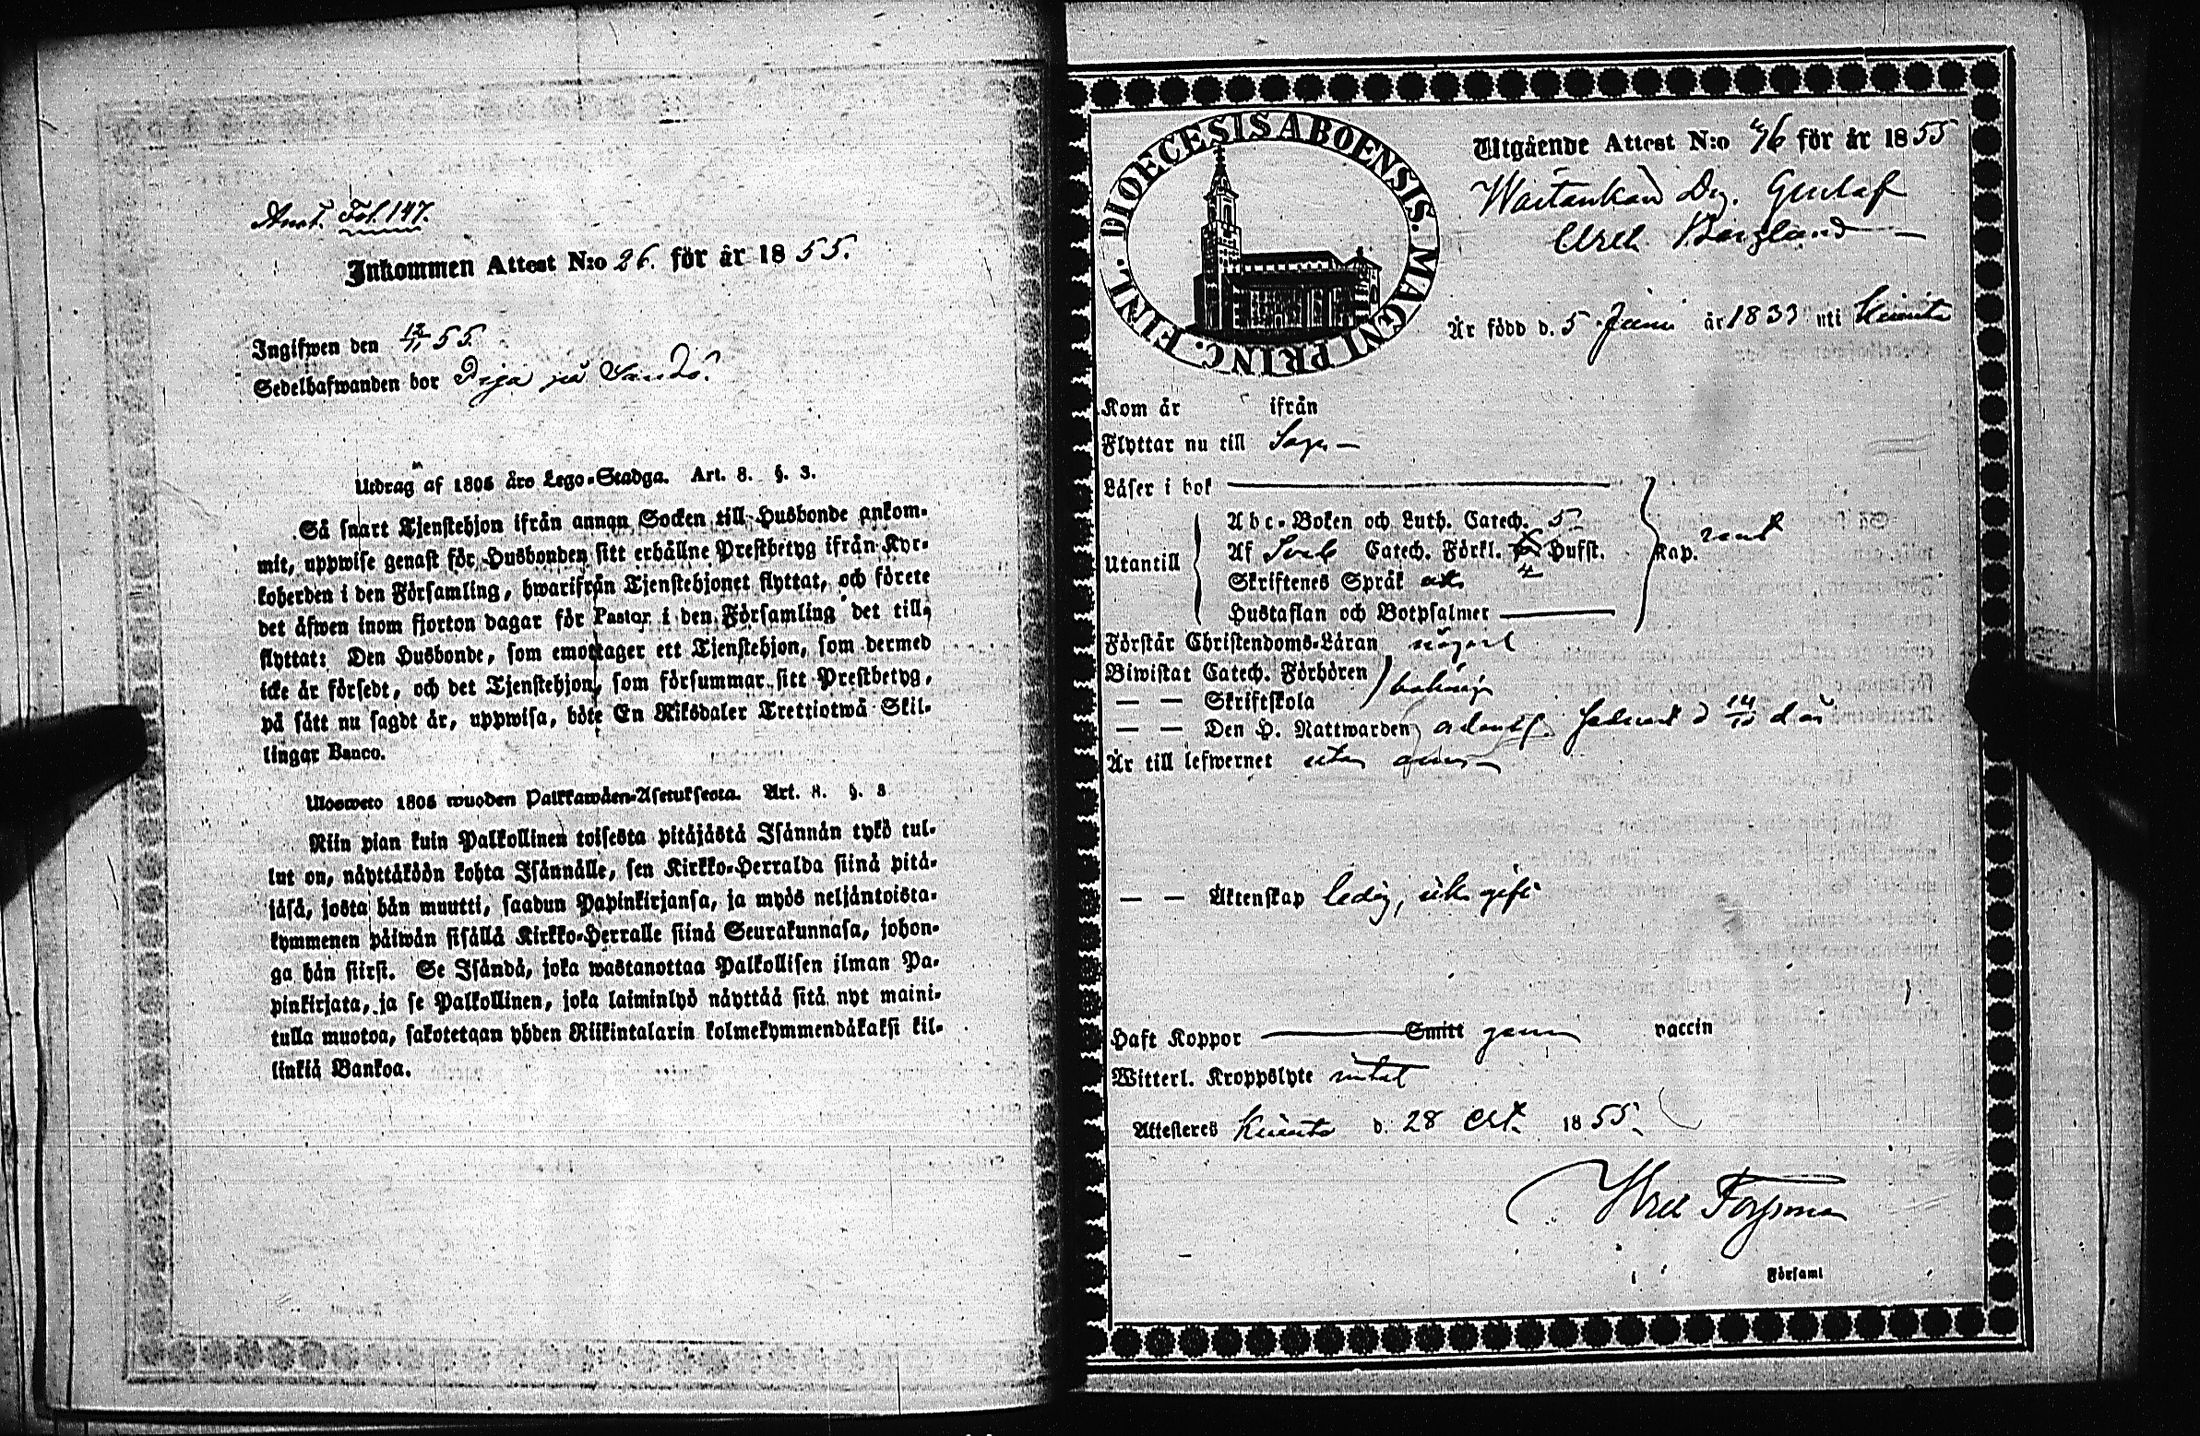 Anst. Fol. 147.
Inkommen Attest N:o 26. för år 1855.
Ingifwen den 12/11 55.
Sedelhafwanden bor Piga på Sandö.
Utdrag af 1805 års Lego-Stadga. Art. 8. §. 3.
Så snart Tjenstehjon ifrån annan Socken till Husbonde ankom-
mit, uppwise genast för Husbonden sitt erhållne Prestbetyg ifrån Kyr-
koherden i den Församling, hwarifrån Tjenstehjonet flyttat, och förete
det äfwen inom fjorton dagar för Pastor i den Församling det till-
flyttat: Den Husbonde, som emottager ett Tjenstehjon, som dermed
icke är försedt, och det Tjenstehjon, som försummar sitt Prestbetyg,
på sätt nu sagdt är, uppwisa, böte En Riksdaler Trettiotwå Skil-
lingar Banco.
Ulosweto 1805 wuoden Palkkawäen-Asetuksesta. Art. 8. §. 3
Niin pian kuin Palkollinen toisesta pitäjästä Isännän tykö tul-
lut on, näyttäköön kohta Isännälle, sen Kirkko-Herralda siinä pitä-
jäsä, josta hän muutti, saadun Papinkirjansa, ja myös neljäntoista-
kymmenen päiwän sisällä Kirkko-Herralle siinä Seurakunnasa, johon-
ga hän siirsi. Se Isändä, joka wastanottaa Palkollisen ilman Pa-
pinkirjata, ja se Palkollinen, joka laiminlyö näyttää sitä nyt maini-
tulla muotoa, sakotetaan yhden Riikintalarin kolmekymmendäkaksi kil-
linkiä Bankoa.
DIOECESIS ABOENSIS. MAGNI PRINC. FINL.
Utgående Attest N:o 46 för år 1855
Drg. Gustaf
Berglund
Är född d. 5 Juni år 1833 uti Kimito
Kom år ifrån
Flyttar nu till
Läser i bok
Utantill
Abc-Boken och Luth. Catech. 5
Af Sveb Catech. Förkl. Hufst. 4
Skriftenes Språk
Hustaflan och Botpsalmer
Kap.
Förstår Christendoms-Läran någorl
Biwistat Catech. Förhören
— — Skriftskola
behörig
— — Den H. Nattwarden ordentl. d 14/10 d år
Är till lefwernet utan anm
— — Äktenskap ledig, ick gift
Haft Koppor Smitt genom vaccin
Witterl. Kroppslyte intet
Attesteres Kimito d. 28 Oct. 1855.
Forssman
i Församl